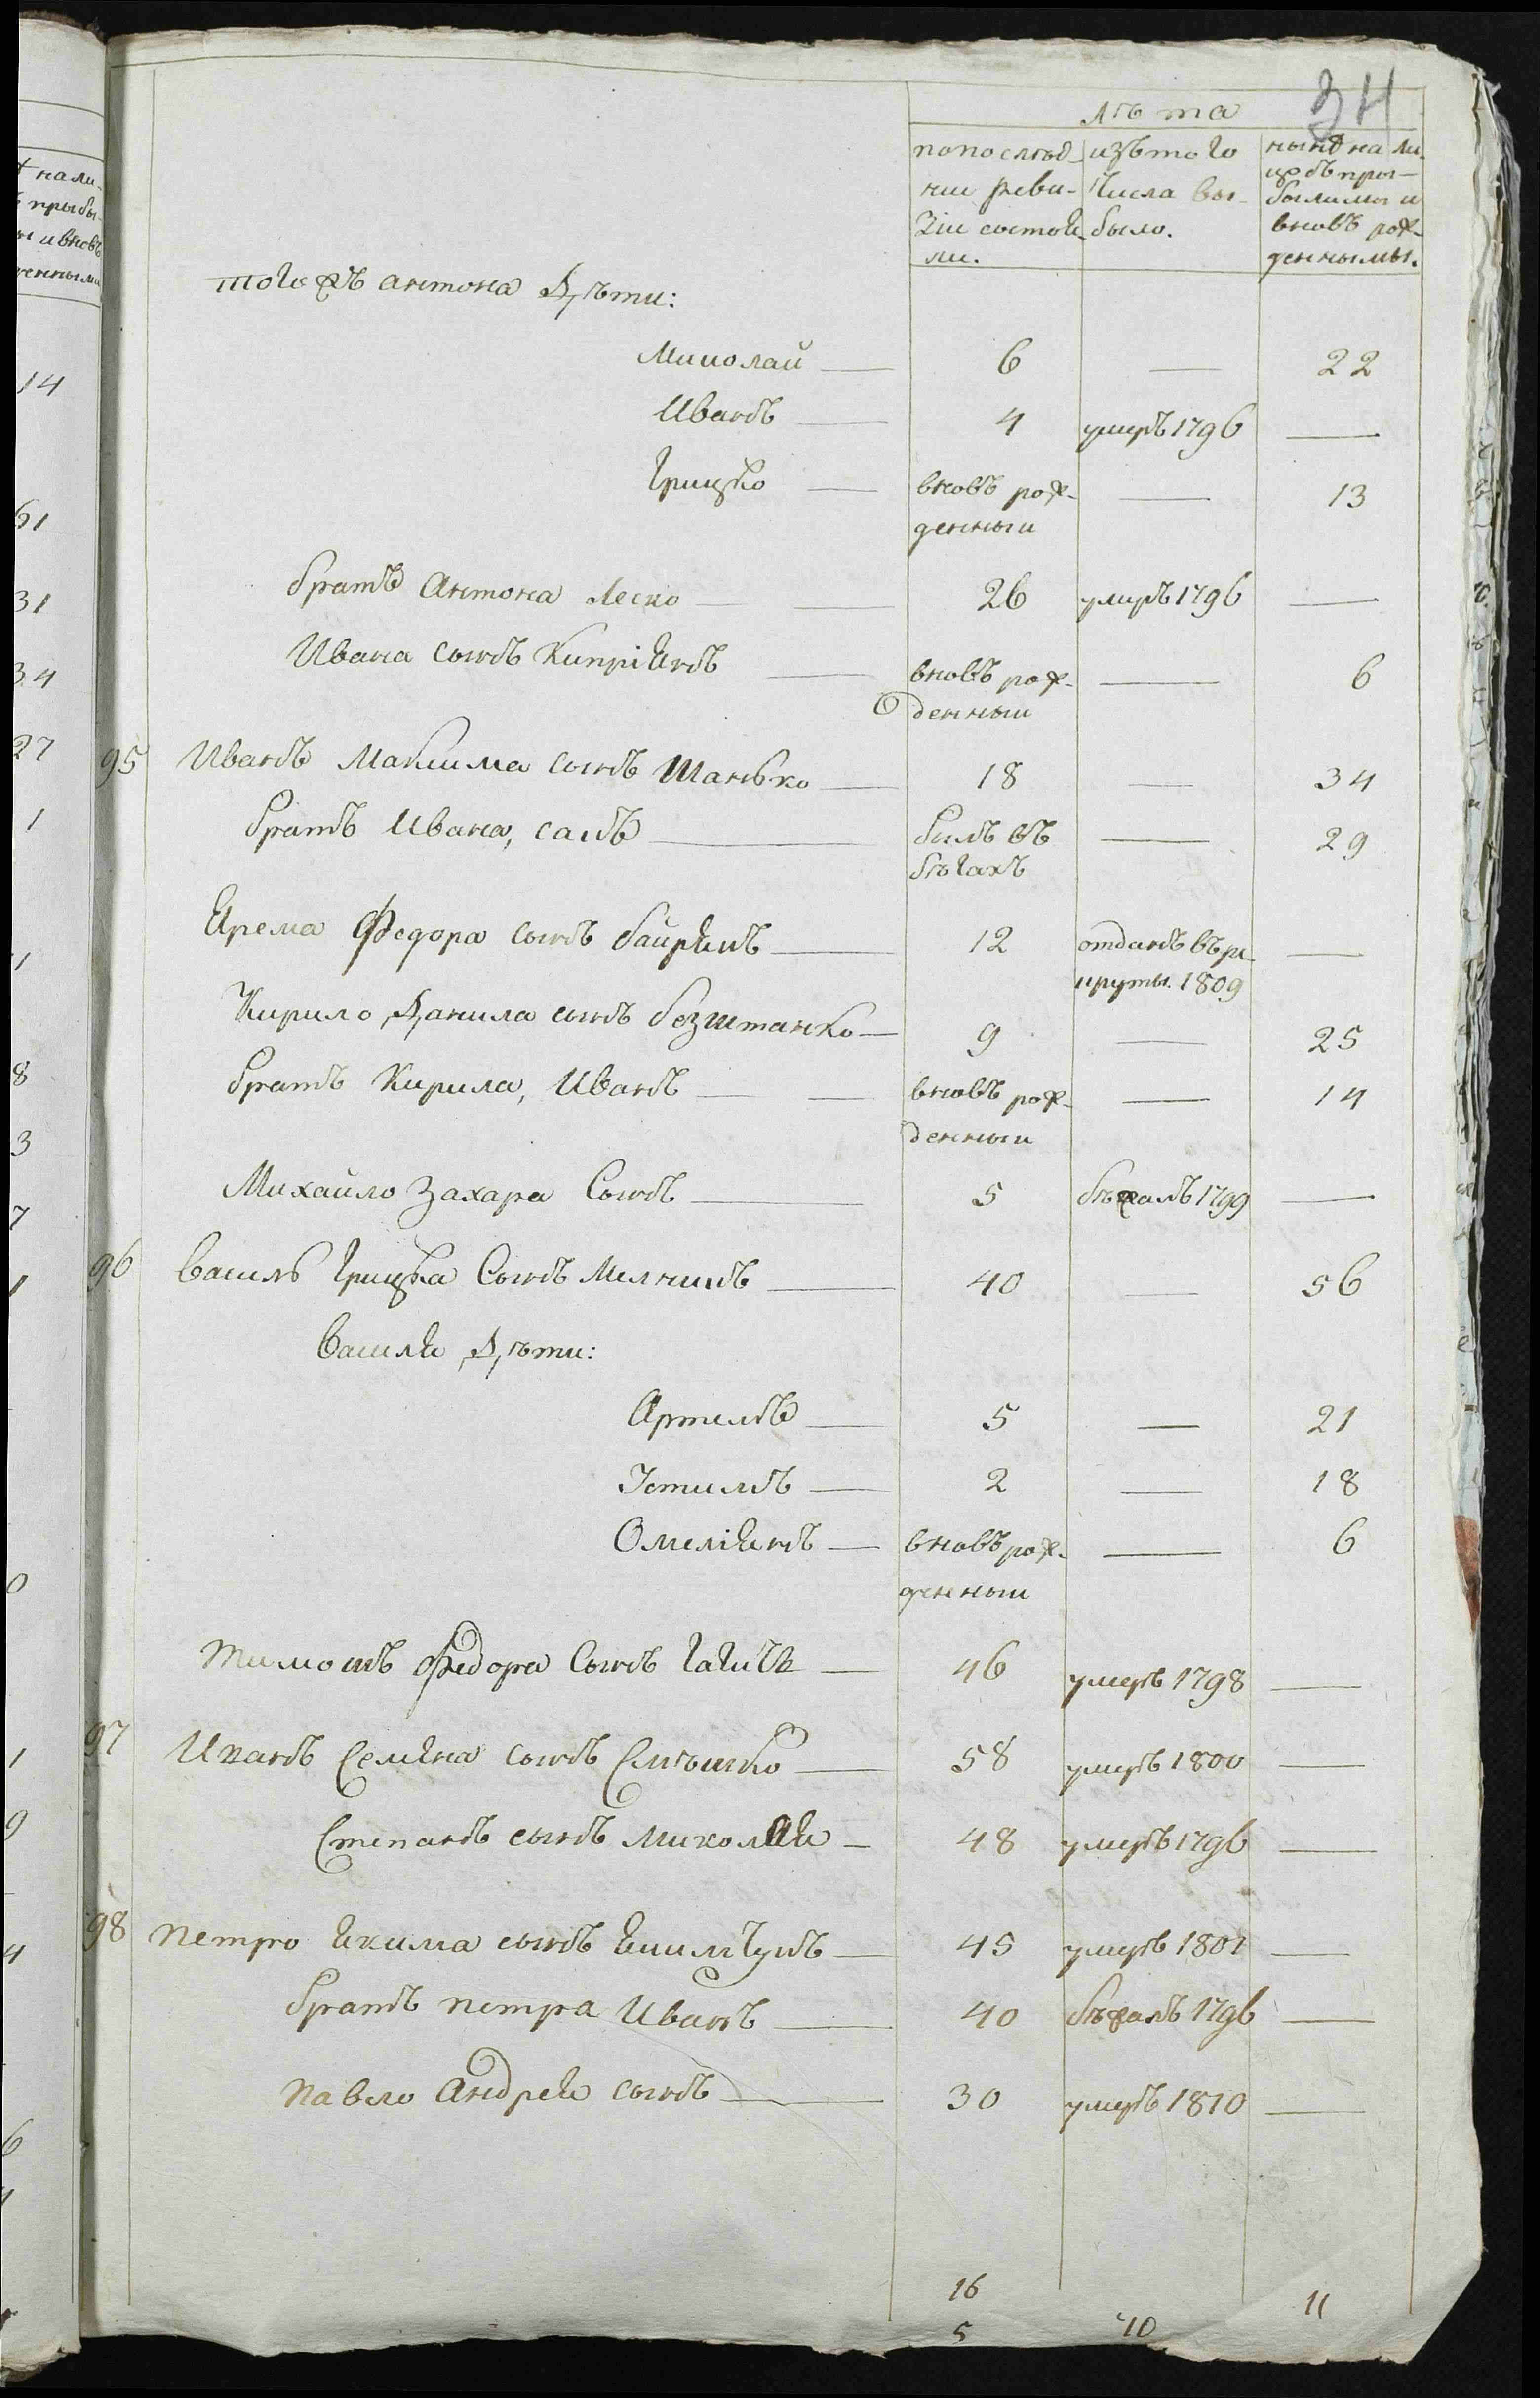 34
лѣта
по послѣд-
ние реви-
зіи состоя-
ли.
изъ того
числа вы-
было.
нынѣ на ли-
цо съ при-
былыми и
вновь рож-
денными.
тогожъ антона Дѣти:
Миколай 6 — 22
Иванъ 4 умеръ 1796 —
Грицко вновь рож-
денный — 13
братъ Антона Леско 26 умеръ 1796 —
Ивана сынъ Кипріянъ вновь рож-
денный — 6
95 Иванъ Максима сынъ Шанько 18 — 34
братъ Ивана, савъ былъ въ
бѣгахъ — 29
Ярема Федора сынъ байракъ 12 отданъ въ ре
круты. 1809 —
Кирило Данила сынъ безштанко 9 — 25
братъ Кирила, Иванъ вновь рож-
денный — 14
Михайло Захара Сынъ 5 бѣжалъ 1799 —
96 Василь Грицка Сынъ Мелникъ 40 — 56
Василя Дѣти:
Артемъ 5 — 21
Устимъ 2 — 18
Омеліянъ вновь рож-
денный — 6
Тимошъ Федора Сынъ 46 умеръ 1798 —
97 Ипатъ Семена сынъ 58 умеръ 1800 —
Степанъ сынъ Миколая 48 умеръ 1796 —
98 Петро Якима сынъ 45 умеръ 1801 —
братъ петра Иванъ 40 бѣжалъ 1796 —
Павло Андрея сынъ 30 умеръ 1810 —
16 11
5 10